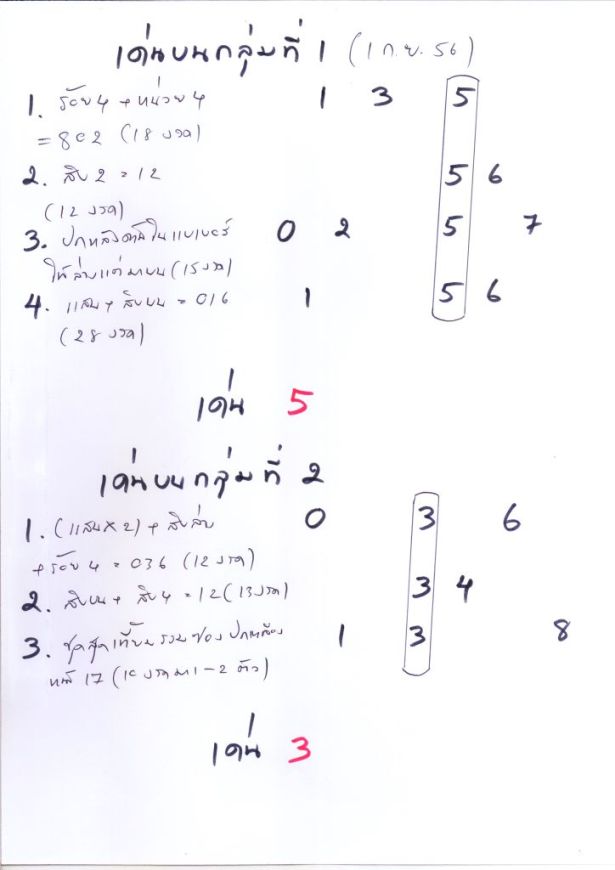 เด่นบนกลุ่มที่ 1 (1 ก.ย. 56)
1. ร้อย 4 + หน่วย 4 1 3 5
= 802 (18 งวด)
2. สิบ 2 = 12 5 6
(12 งวด)
3. ปกหลังดาใน 0 2 5 7
ให้ล่างแต่มาบน (15 งวด)
4. แสน + สิบบน = 016 1 5 6
(28 งวด)
เด่น 5
เด่นบนกลุ่มที่ 2
1. (แสน x 2) + สิบล่าง 0 3 6
+ ร้อย 4 = 036 (12 งวด)
2. สิบบน + สิบ 4 = 12 (13 งวด) 3 4
3. ชุดสุดเที่ยมรวมซองปกหลัง 1 3 8
17 (10 งวด มา 1-2 ตัว)
เด่น 3